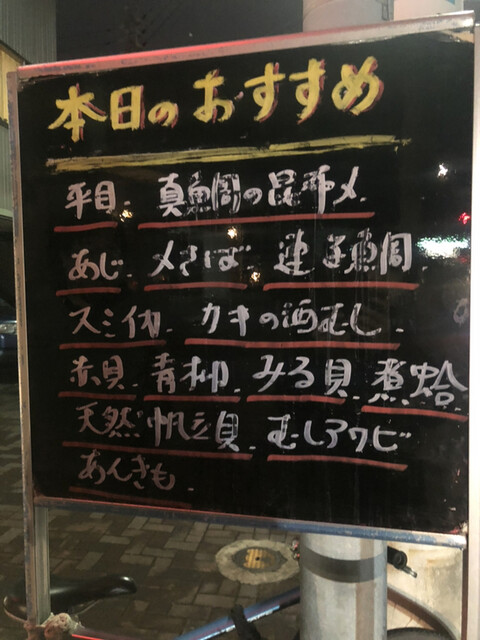 本日のおすすめ
平目. 真鯛の昆布〆.
あじ. 〆さば. 連子鯛.
スミイカ. カキの酒むし.
赤貝. 青柳. みる貝. 煮蛤.
天然帆立貝. むしアワビ
あんきも.